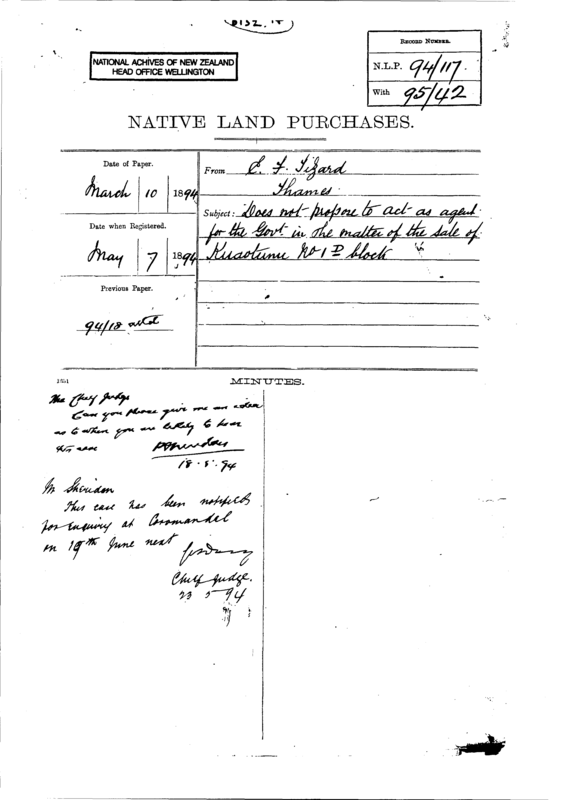 NATIONAL ACHIVES OF NEW ZEALAND
HEAD OFFICE WELLINGTON
RECORD NUMBER.
N.L.P. 94/117.
With 95/42
NATIVE LAND PURCHASES.
Date of Paper.
March 10 1894
Date when Registered.
May 7 1894
Previous Paper.
94/18
From E. F. Tizard
Thames.
Subject: Does not propose to act as agent
for the Govt. in the matter of the sale of
Kuaotunu No 1 D block
1051
MINUTES.
The Chief Judge
Can you please give me an idea
as to when you are likely to hear
this case
18.5.94
Mr Sheridan
This case has been notified
for enquiry at Coromandel
on 19th June next
Chief Judge.
23 5 94